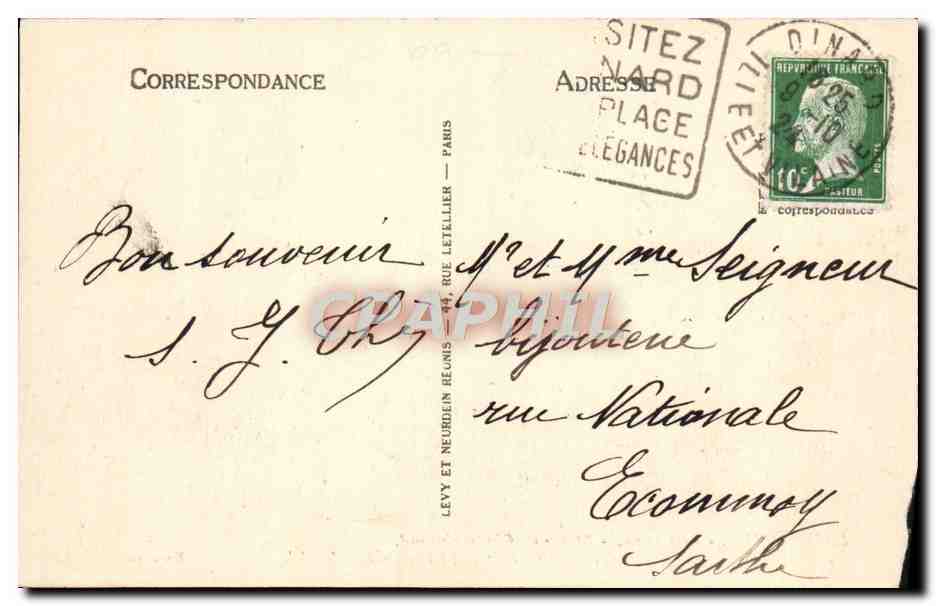 CORRESPONDANCE
ADRESSE
SITEZ
NARD
PLAGE
ELEGANCES
DINARD
ILLE ET VILAINE
8 25
24
10
REPUBLIQUE FRANÇAISE
10c
POSTES
PASTEUR
correspondance
Bon souvenir
s. J. Th
LEVY ET NEURDEIN REUNIS 44, RUE LETELLIER — PARIS
CPAPHIL
Mr et Mme Seigneur
bijouterie
rue Nationale
Ecommoy
Sarthe